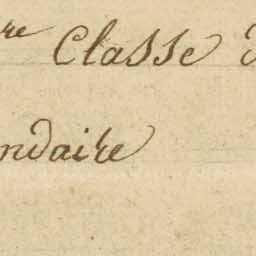 re Classe
ndaire